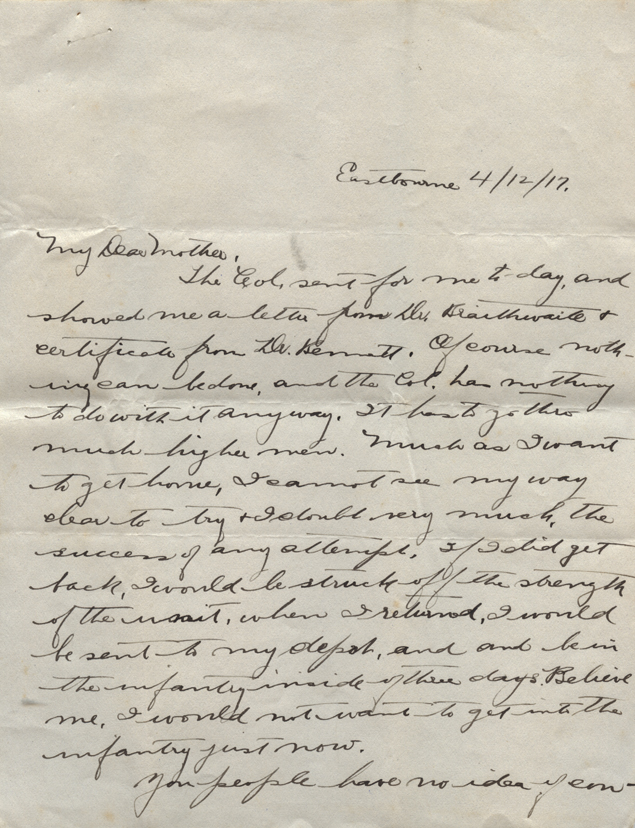 Eastbourne 4/12/17.
My Dear Mother,
The Col. sent for me to-day, and
showed me a letter from Dr. Braithwaite +
certificate from Dr. Bennett. Of course noth-
ing can be done, and the Col. has nothing
to do with it anyway. It has to go thro
much higher men. Much as I want
to get home, I cannot see my way
clear to try + I doubt very much, the
success of any attempt. If I did get
back, I would be struck off the strength
of the unit, when I returned, I would
be sent to my depot, and and be in
the infantry inside of three days. Believe
me, I would not want to get into the
infantry just now.
You people have no idea of con-